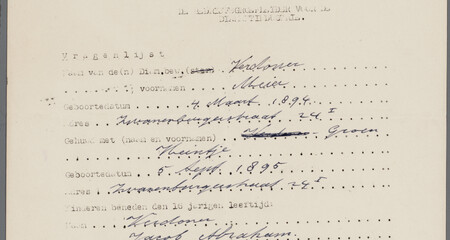 Vragenlijst
Naam van de(n) Verdoner
voornamen Meier
Geboortedatum 4 Maart 1894
Adres Zwanenburgerstraat 24 I
Gehuwd met (naam en voornamen) Groen
Heintje
Geboortedatum 5 Sept. 1895
Adres Zwanenburgerstraat 24 I
Kinderen beneden den 16 jarigen leeftijd:
Naam Verdoner
Jacob Abraham